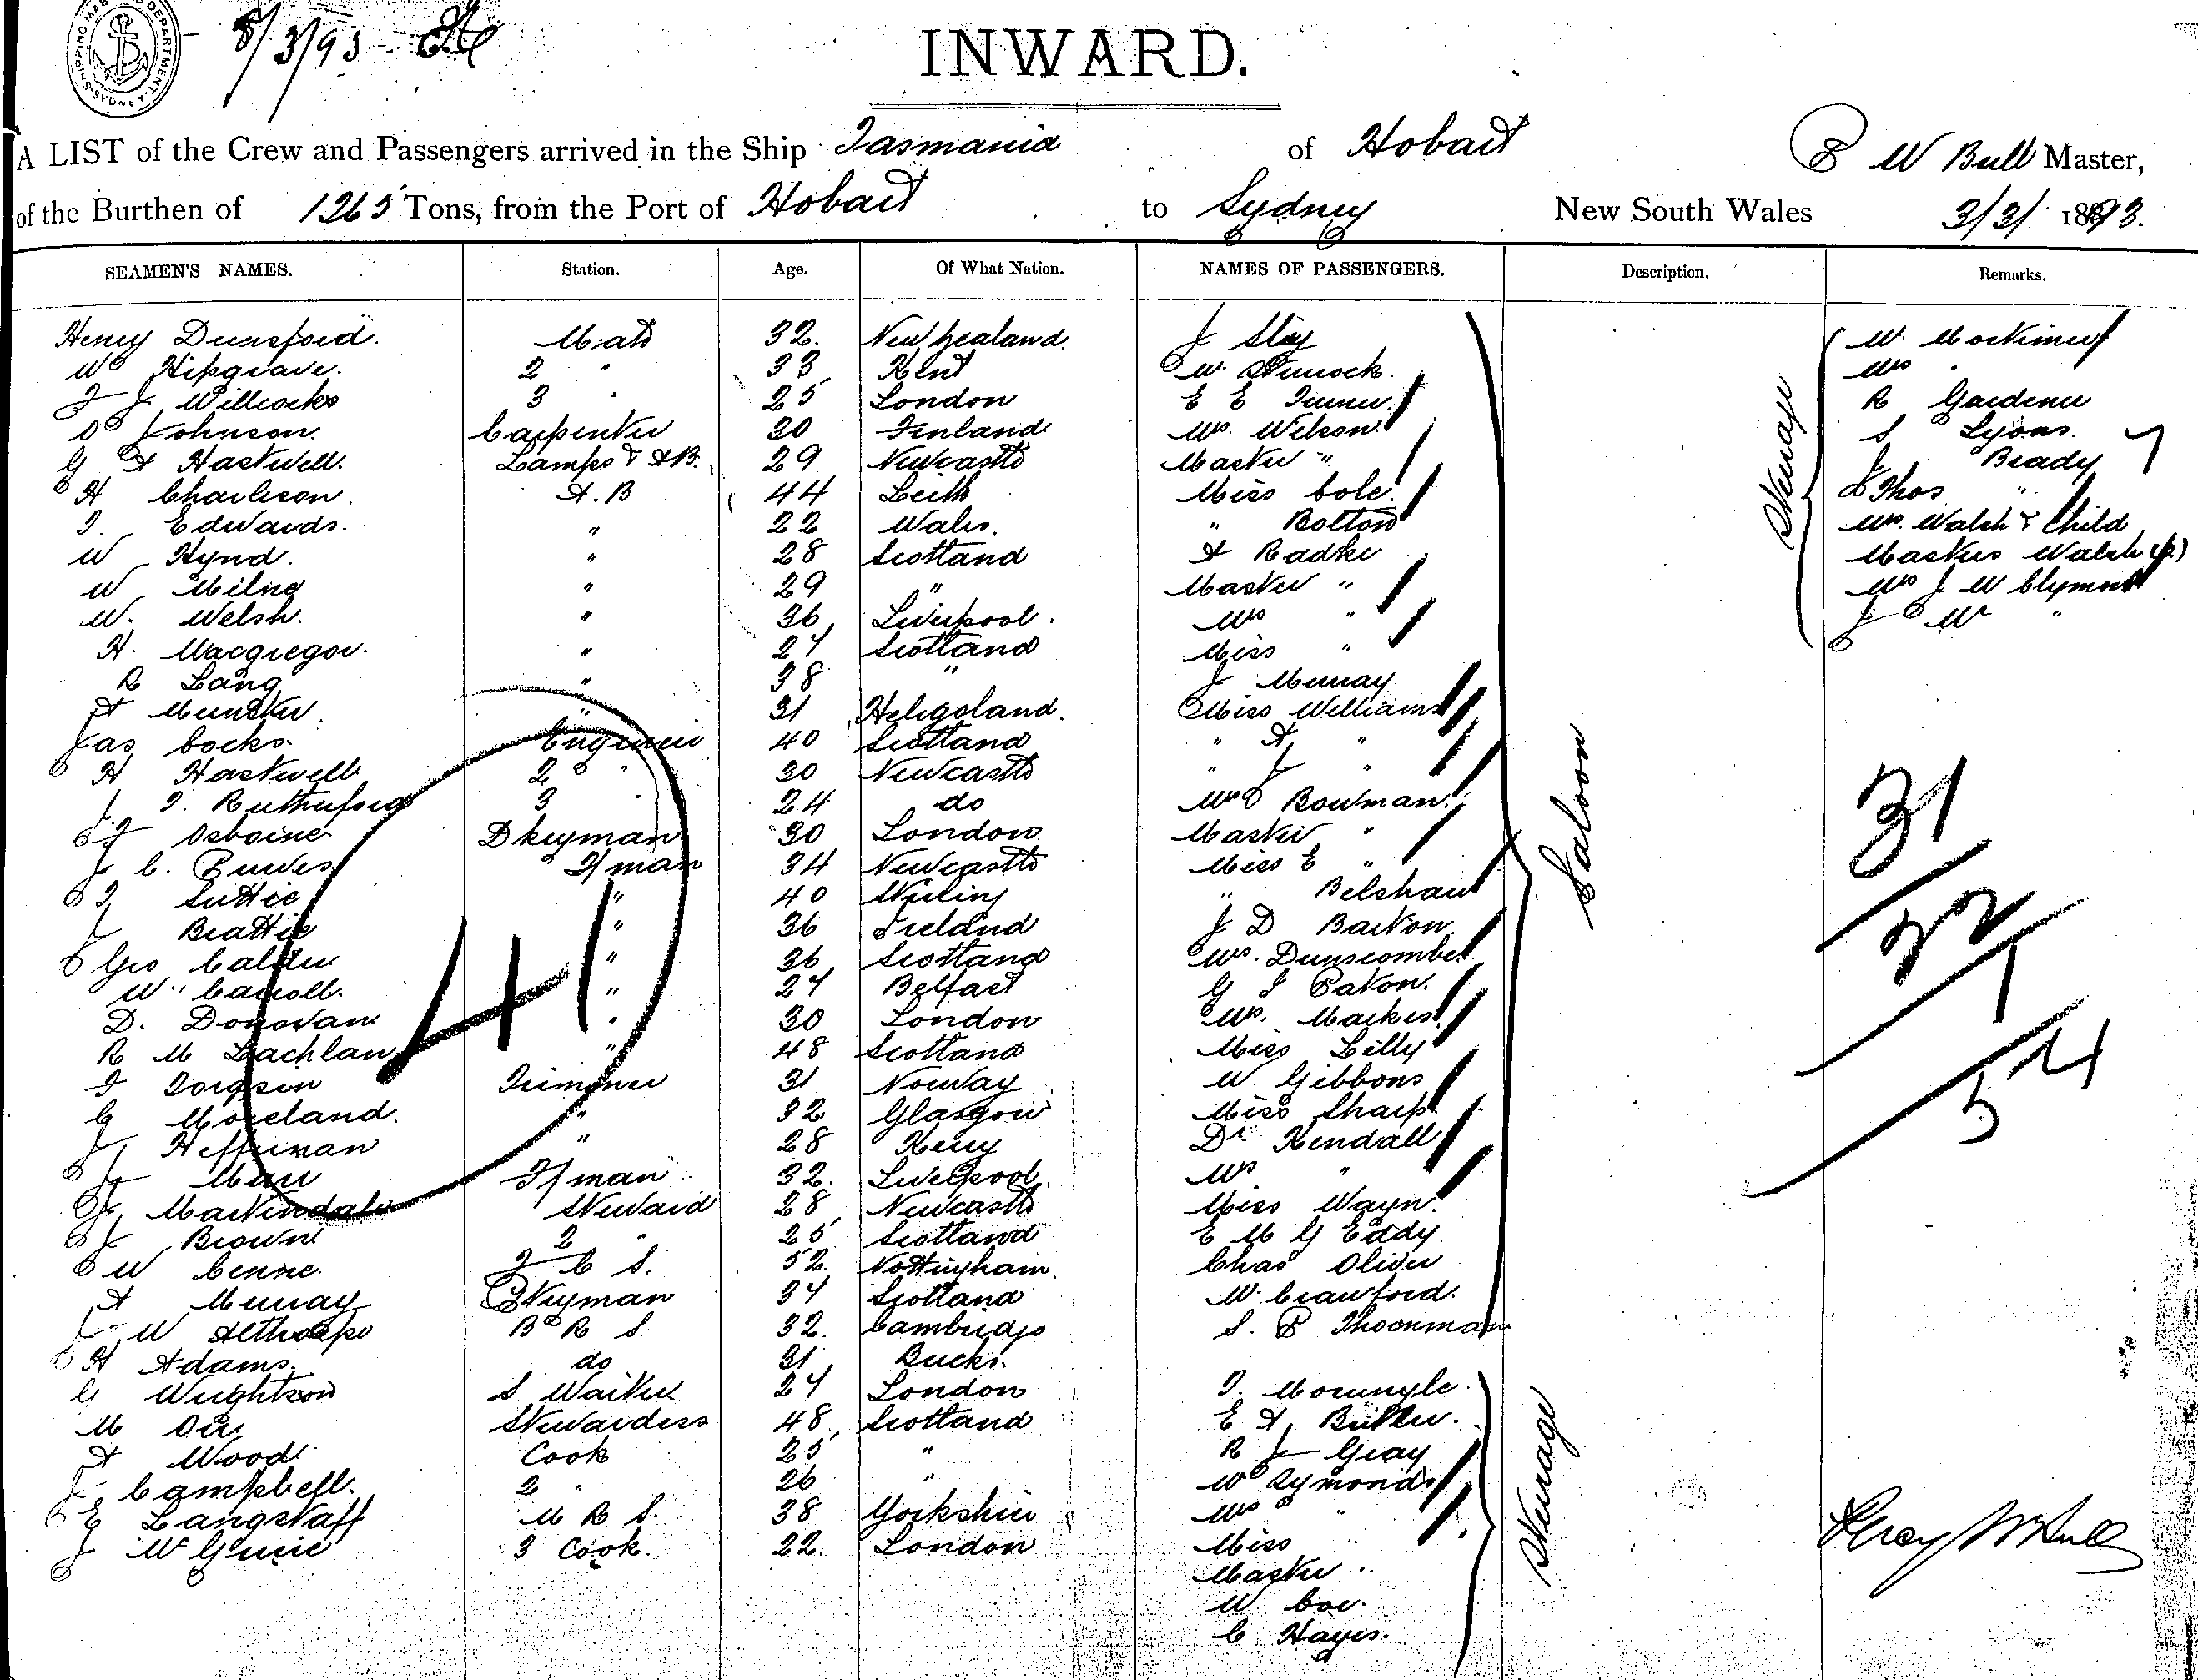 SHIPPING MASTERS DEPARTMENT SYDNEY
8/3/93
INWARD.
A LIST of the Crew and Passengers arrived in the Ship Tasmania of Hobart W Bull Master,
of the Burthen of 1265 Tons, from the Port of Hobart to Sydney New South Wales 3/3/ 1893.
SEAMEN'S NAMES. Station. Age. Of What Nation. NAMES OF PASSENGERS. Description. Remarks.
Henry Dunsford. Mate 32. New Zealand. J Slay W. Mortimer
Wm Hipgrave. 2 " 33 Kent W. Mrs "
J Willcocks 3 " 25 London E E Turner R Gardener
Johnson. Carpenter 30 Finland Mrs. Wilson S Lyons.
G A Hastwell. Lamps & AB. 29 Newcastle Master " J Brady
H Charleson. A.B 44 Leith Miss Cole Thos "
T. Edwards. " 22 Wales. " Bolton Mrs. Walsh & Child
W Hynd. " 28 Scotland A Radke Masters Walsh (2)
W Milne " 29 " Master " Mrs J W Clymont
W. Welsh. " 36 Liverpool. Mrs " J W "
H. Macgregor. " 27 Scotland Miss "
R Lang " 38 " J Murray
A Munster " 31 Heligoland. Miss Williams
Jas Cocks. Engineer 40 Scotland " A "
H Hastwell 2 " 30 Newcastle " J "
T. Rutherford 3 " 24 do Mrs Bowman.
J Osborne Dkeyman 30 London Master "
J C. Purves F/man 34 Newcastle Miss E "
Suttie " 40 Stirling " Belshaw
J Beattie " 36 Ireland J D Barton.
Geo Calder " 36 Scotland Mrs. Dunscombe
W. Carroll. " 27 Belfast G S Paton.
D. Donovan " 30 London Mrs. Markes
R M Lachlan " 48 Scotland Miss Lilly
T Torgsen Trimmer 31 Norway W. Gibbons
G Moreland. " 32 Glasgow Miss Sharp
J Heffernan " 28 Kerry Dr Kendall
J Marr F/man 32. Liverpool. Mrs "
J Martindale Steward 28 Newcastle Miss Wayn
J Brown 2 " 25 Scotland E M G Eddy
W 52. Nottingham. Chas Oliver
A Murray 34 Scotland W. Crawford.
J W Althorpe B R S 32. Cambridge S. P
H Adams. do 31 Bucks.
G Wrightson S Waiter 27 London T.
M Orr Stewardess 48 Scotland E A Butler.
A Wood Cook 25 " R J Gray
J. Campbell. 2 " 26 " W Symonds
E Langstaff M R S. 38 Yorkshire Mrs "
J W Gurrie 3 Cook. 22. London Miss "
Master "
W Cox.
C Hayes.
Saloon
Steerage
Steerage
41
31
22
1
54